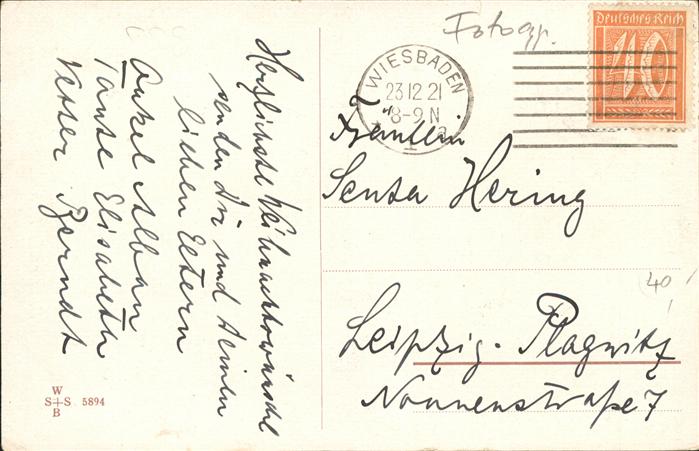 Herzlichste Weihnachtswünsche
senden Dir und Deinen
lieben Eltern
Onkel Alban
Tante Elisabeth
Vetter Berndt
Fotogr.
Deutsches Reich
40
WIESBADEN
23 12 21
8-9 N
Fräulein
Senta Hering
Leipzig-Plagwitz
Nonnenstraße 7
40
W
S+S 5894
B